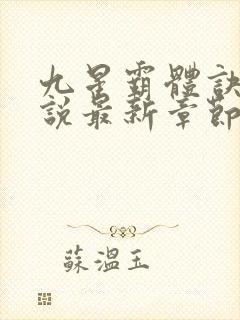 九星霸體訣
說最新章節
蘇溫玉